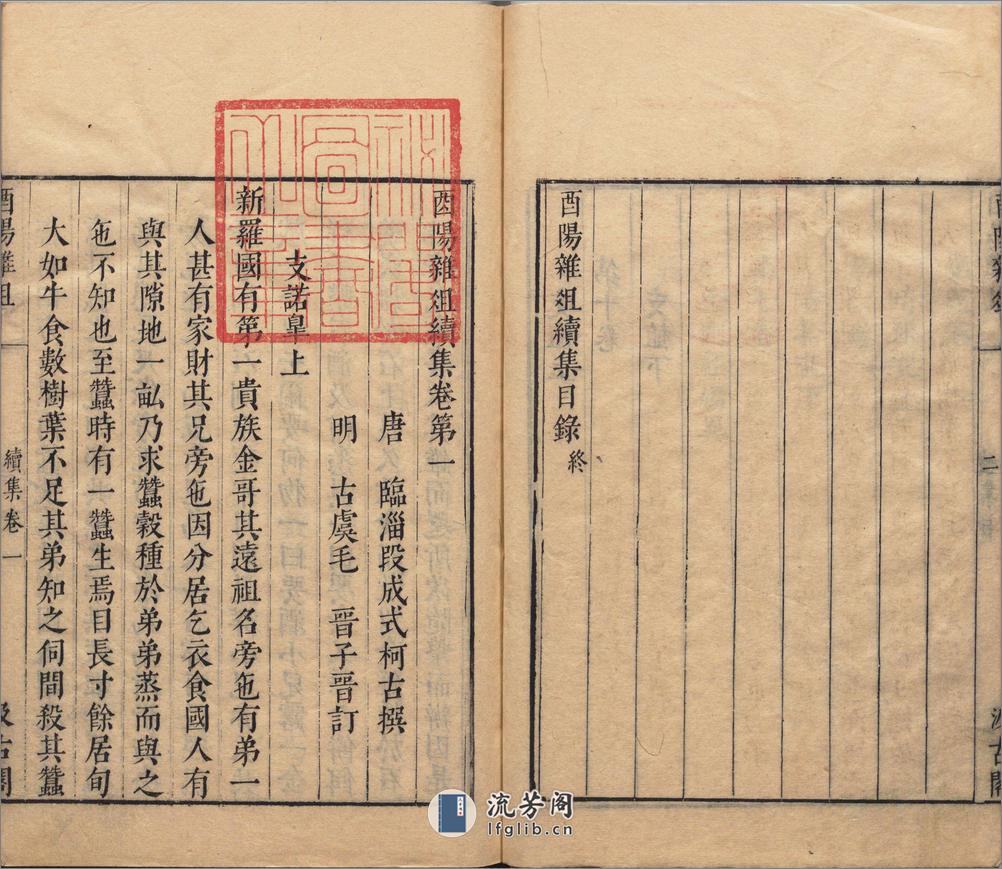 二
酉陽雜俎續集目錄終
祕閣圖書之章
酉陽雜俎續集卷第一
唐 臨淄段成式柯古撰
明 古虞毛 晉子晉訂
支諾皐上
新羅國有第一貴族金哥其遠祖名旁㐌有弟一
人甚有家財其兄旁㐌因分居乞衣食國人有
與其隙地一畆乃求蠶穀種於弟弟蒸而與之
㐌不知也至蠶時有一蠶生焉目長寸餘居旬
大如牛食數樹葉不足其弟知之伺間殺其蠶
酉陽雜俎 續集卷一 汲古閣
流芳阁
lfglib.cn